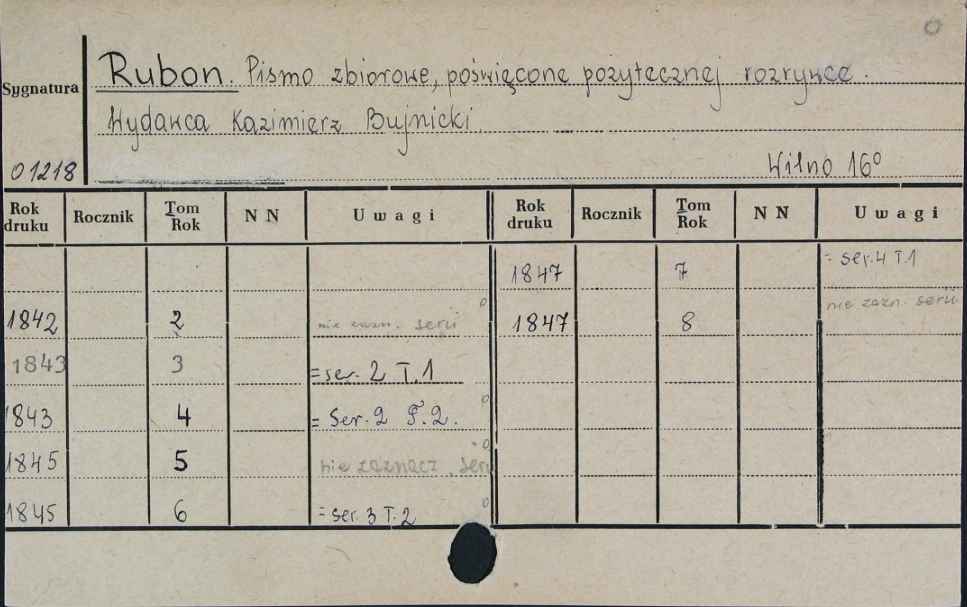 o
Rubon. Pismo zbiorowe, poświęcone pożytecznej rozrywce.
Sygnatura
Wydawca Kazimierz Bujnicki.
01218 Wilno 16°
Rok druku Rocznik Tom Rok N N Uwagi Rok druku Rocznik Tom Rok N N Uwagi
1847 7 = ser. 4 T. 1
1842 2 nie zazn. serii 1847 8 nie zazn. serii
1843 3 = ser. 2 T. 1
1843 4 = Ser. 2 T. 2.
1845 5 nie zaznacz. serii
1845 6 = ser. 3 T. 2